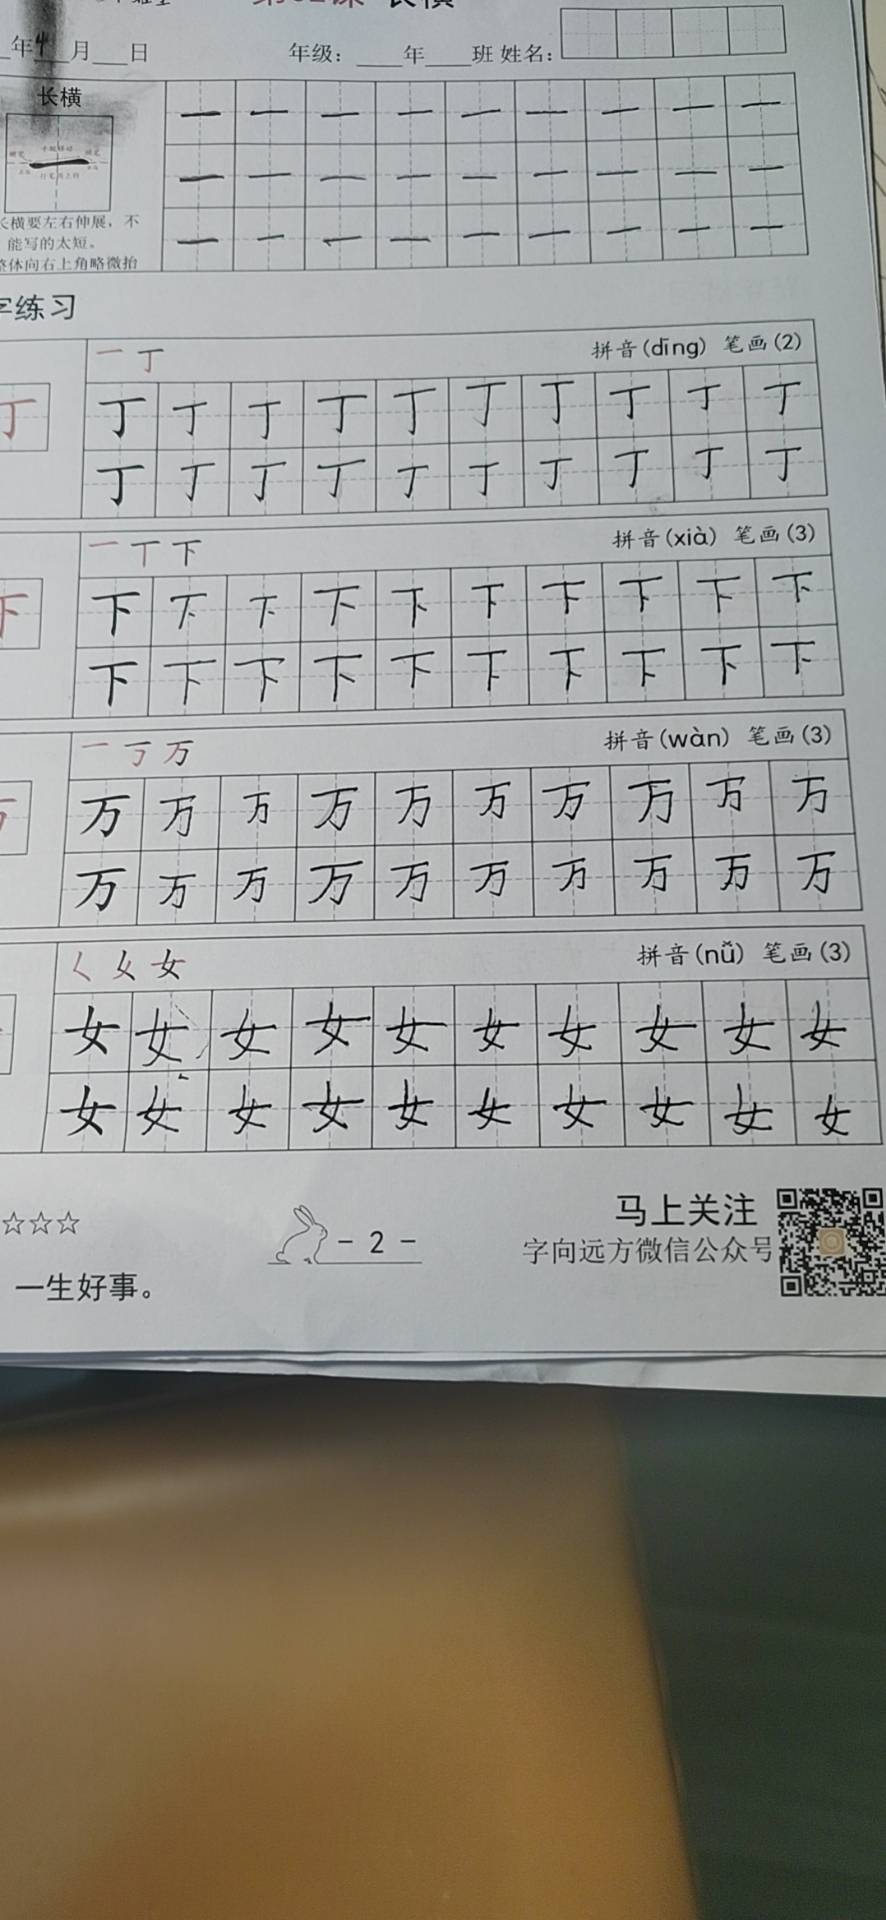 长横
年4月 日 年级： 年 班 姓名：
长横
一 一 一 一 一 一 一 一 一
一 一 一 一 一 一 一 一 一
一 一 一 一 一 一 一 一 一
长横要左右伸展，不
能写的太短。
整体向右上角略微抬
字练习
一 丁 拼音(dīng) 笔画(2)
丁 丁 丁 丁 丁 丁 丁 丁 丁 丁 丁
丁 丁 丁 丁 丁 丁 丁 丁 丁 丁
一 丅 下 拼音(xià) 笔画(3)
下 下 下 下 下 下 下 下 下 下 下
下 下 下 下 下 下 下 下 下 下
一 丂 万 拼音(wàn) 笔画(3)
万 万 万 万 万 万 万 万 万 万 万
万 万 万 万 万 万 万 万 万 万
𡿨 女 女 拼音(nǚ) 笔画(3)
女 女 女 女 女 女 女 女 女 女
女 女 女 女 女 女 女 女 女 女
☆☆☆
- 2 -
马上关注
字向远方微信公众号
一生好事。